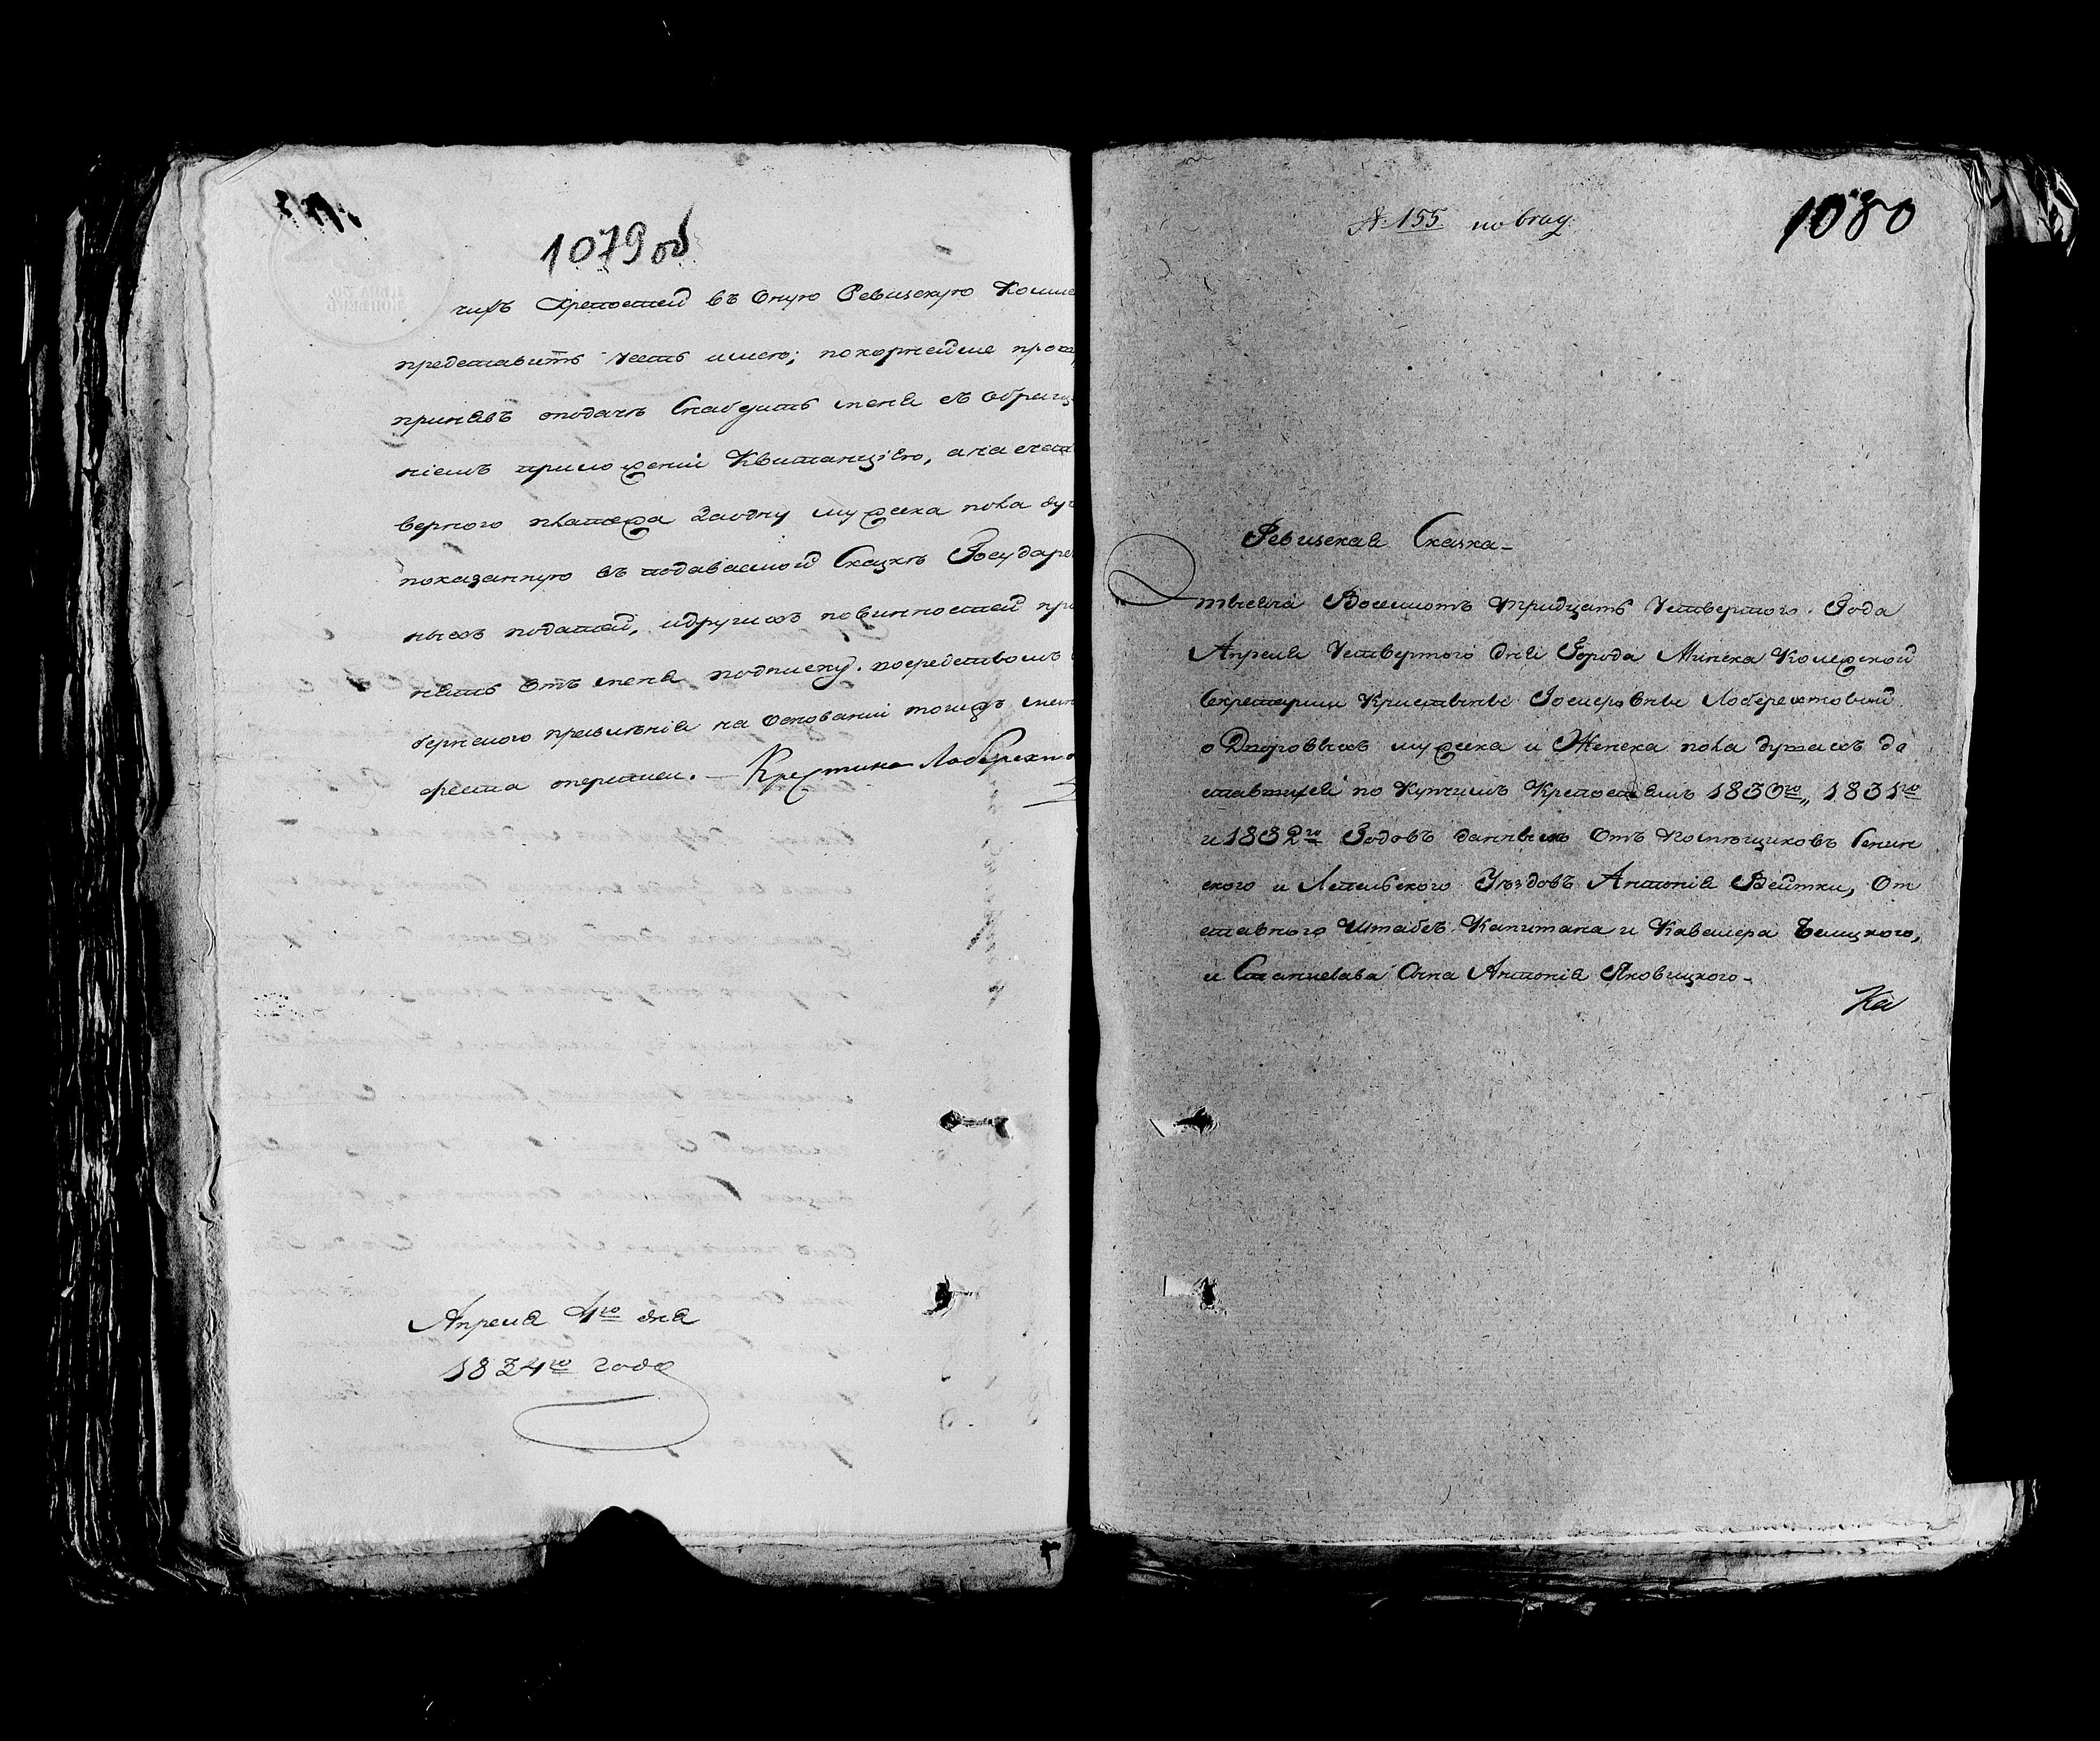 1079 об
чихъ Крепостей въ Оную Ревизскую Комме
представить честь имею; покорнейше про
принявъ оподачѣ Снабдить меня съ обращ
ніемъ приложеній Квитанціею, а на счет
верного платежа Заодну мужеска пола ду
показанную въ подаваемой Сказкѣ Государ
ныхъ податей, идругихъ повинностей пр
нять Отъ меня подписку. посредствомъ
бернского правленія на Основаніи
Крестина Лаберехто
Апреля 4го дня
1834го года
№ 155
1080
Ревизская Сказка
тысяча Восемьсотъ тридцать Четвертого Года
Апреля Четвертого дня Города Минска Колежской
Секретарши Кристыны Лоберехтовой
о Дворовыхъ мужеска и Женска пола душахъ до
ставшихся по Купчимъ Крепостямъ 1830го, 1831го
и 1832го Годовъ данныхъ Отъ Помѣщиковъ Сенин
ского и Лепельского Уѣздовъ Антонія Войтки, От
ставного Штабсъ Капитана и Кавалера Белицкого,
и Станислава Сына Антонія Яновицкого
Ка